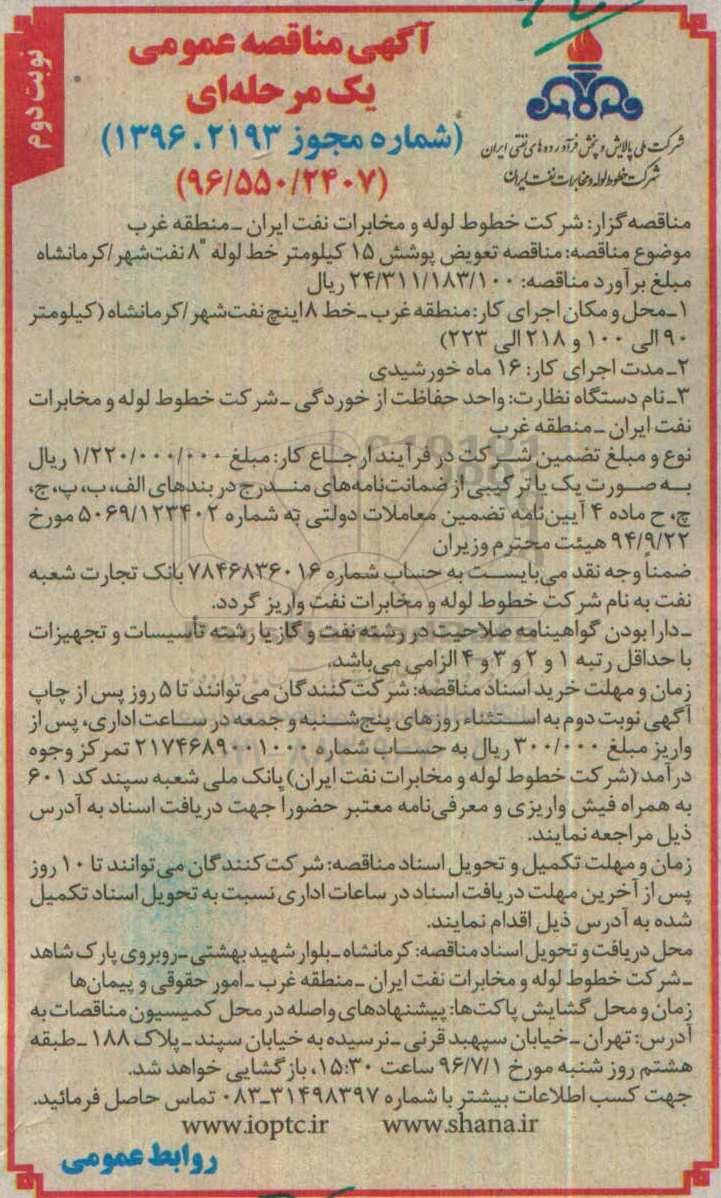 نوبت دوم
آگهی مناقصه عمومی
یک مرحله‌ای
(شماره مجوز ۱۳۹۶.۲۱۹۳)
(۹۶/۵۵۰/۲۴۰۷)
شرکت ملی پالایش و پخش فرآورده‌های نفتی ایران
شرکت خطوط لوله و مخابرات نفت ایران
مناقصه‌گزار: شرکت خطوط لوله و مخابرات نفت ایران ـ منطقه غرب
موضوع مناقصه: مناقصه تعویض پوشش ۱۵ کیلومتر خط لوله "۸ نفت‌شهر/کرمانشاه
مبلغ برآورد مناقصه: ۲۴/۳۱۱/۱۸۳/۱۰۰ ریال
۱ـ محل و مکان اجرای کار: منطقه غرب ـ خط ۸ اینچ نفت‌شهر/کرمانشاه (کیلومتر
۹۰ الی ۱۰۰ و ۲۱۸ الی ۲۲۳)
۲ـ مدت اجرای کار: ۱۶ ماه خورشیدی
۳ـ نام دستگاه نظارت: واحد حفاظت از خوردگی ـ شرکت خطوط لوله و مخابرات
نفت ایران ـ منطقه غرب
نوع و مبلغ تضمین شرکت در فرآیند ارجاع کار: مبلغ ۱/۲۲۰/۰۰۰/۰۰۰ ریال
به صورت یک یا ترکیبی از ضمانت‌نامه‌های مندرج در بندهای الف، ب، پ، ج،
چ، ح ماده ۴ آیین‌نامه تضمین معاملات دولتی به شماره ۵۰۶۹/۱۲۳۴۰۲ مورخ
۹۴/۹/۲۲ هیئت محترم وزیران
ضمناً وجه نقد می‌بایست به حساب شماره ۷۸۴۶۸۳۶۰۱۶ بانک تجارت شعبه
نفت به نام شرکت خطوط لوله و مخابرات نفت واریز گردد.
ـ دارا بودن گواهینامه صلاحیت در رشته نفت و گاز یا رشته تأسیسات و تجهیزات
با حداقل رتبه ۱ و ۲ و ۳ و ۴ الزامی می‌باشد.
زمان و مهلت خرید اسناد مناقصه: شرکت‌کنندگان می‌توانند تا ۵ روز پس از چاپ
آگهی نوبت دوم به استثناء روزهای پنج‌شنبه و جمعه در ساعت اداری، پس از
واریز مبلغ ۳۰۰/۰۰۰ ریال به حساب شماره ۲۱۷۴۶۸۹۰۰۱۰۰۰ تمرکز وجوه
درآمد (شرکت خطوط لوله و مخابرات نفت ایران) بانک ملی شعبه سپند کد ۶۰۱
به همراه فیش واریزی و معرفی‌نامه معتبر حضوراً جهت دریافت اسناد به آدرس
ذیل مراجعه نمایند.
زمان و مهلت تکمیل و تحویل اسناد مناقصه: شرکت‌کنندگان می‌توانند تا ۱۰ روز
پس از آخرین مهلت دریافت اسناد در ساعات اداری نسبت به تحویل اسناد تکمیل
شده به آدرس ذیل اقدام نمایند.
محل دریافت و تحویل اسناد مناقصه: کرمانشاه ـ بلوار شهید بهشتی ـ روبروی پارک شاهد
ـ شرکت خطوط لوله و مخابرات نفت ایران ـ منطقه غرب ـ امور حقوقی و پیمان‌ها
زمان و محل گشایش پاکت‌ها: پیشنهادهای واصله در محل کمیسیون مناقصات به
آدرس: تهران ـ خیابان سپهبد قرنی ـ نرسیده به خیابان سپند ـ پلاک ۱۸۸ ـ طبقه
هشتم روز شنبه مورخ ۹۶/۷/۱ ساعت ۱۵:۳۰، بازگشایی خواهد شد.
جهت کسب اطلاعات بیشتر با شماره ۳۱۴۹۸۳۹۷ـ۰۸۳ تماس حاصل فرمائید.
www.ioptc.ir www.shana.ir
روابط عمومی